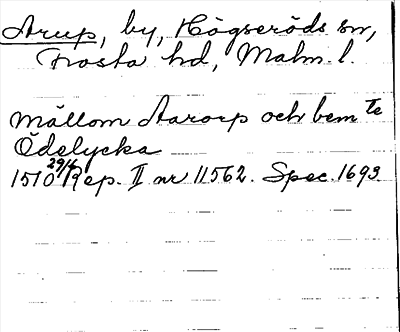 Arup, by, Högseröds sn,
Frosta hd, Malm. l.
mällom Aarorp och bem te
Ödelycka
1510 29/4 Rep. II nr 11562. Spec. 1693.